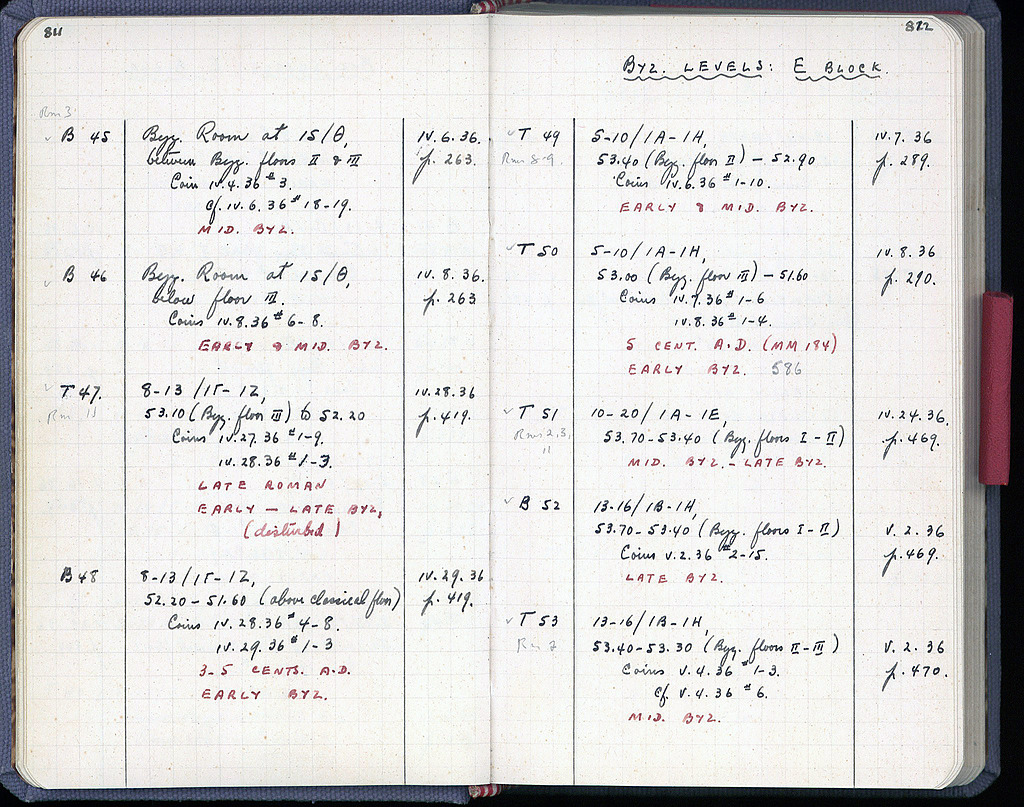 811
Rm 3
B 45 Byz. Room at 15/Θ, IV.6.36.
between Byz. floors II & III p. 263.
Coin IV.4.36 #3.
cf. IV.6.36 #18-19.
MID. BYZ.
B 46 Byz. Room at 15/Θ, IV.8.36.
below floor III. p. 263
Coins IV.8.36 #6-8.
EARLY & MID. BYZ.
T 47. 8-13/1Γ-1Z, IV.28.36
Rm 11 53.10 (Byz. floor III) to 52.20 p. 419.
Coins IV.27.36 #1-9.
IV.28.36 #1-3.
LATE ROMAN
EARLY - LATE BYZ,
(disturbed)
B 48 8-13/1Γ-1Z, IV.29.36
52.20-51.60 (above classical floor) p. 419.
Coins IV.28.36 #4-8.
IV.29.36 #1-3
3-5 CENTS. A.D.
EARLY BYZ.
812
BYZ. LEVELS: E BLOCK.
T 49 5-10/1A-1H, IV.7.36
Rms 8-9. 53.40 (Byz. floor II) - 52.90 p. 289.
Coins IV.6.36 #1-10.
EARLY & MID. BYZ.
T 50 5-10/1A-1H, IV.8.36
53.00 (Byz. floor III) - 51.60 p. 290.
Coins IV.7.36 #1-6
IV.8.36 #1-4.
5 CENT. A.D. (MM 184)
EARLY BYZ. 586
T 51 10-20/1A-1E, IV.24.36.
Rms 2,3, 53.70-53.40 (Byz. floors I-II) p. 469.
11 MID. BYZ.-LATE BYZ.
B 52 13-16/1B-1H,
53.70-53.40 (Byz. floors I-II) V.2.36
Coins V.2.36 #2-15. p. 469.
LATE BYZ.
T 53 13-16/1B-1H,
Rm 2 53.40-53.30 (Byz. floors II-III) V.2.36
Coins V.4.36 #1-3. p. 470.
cf. V.4.36 #6.
MID. BYZ.